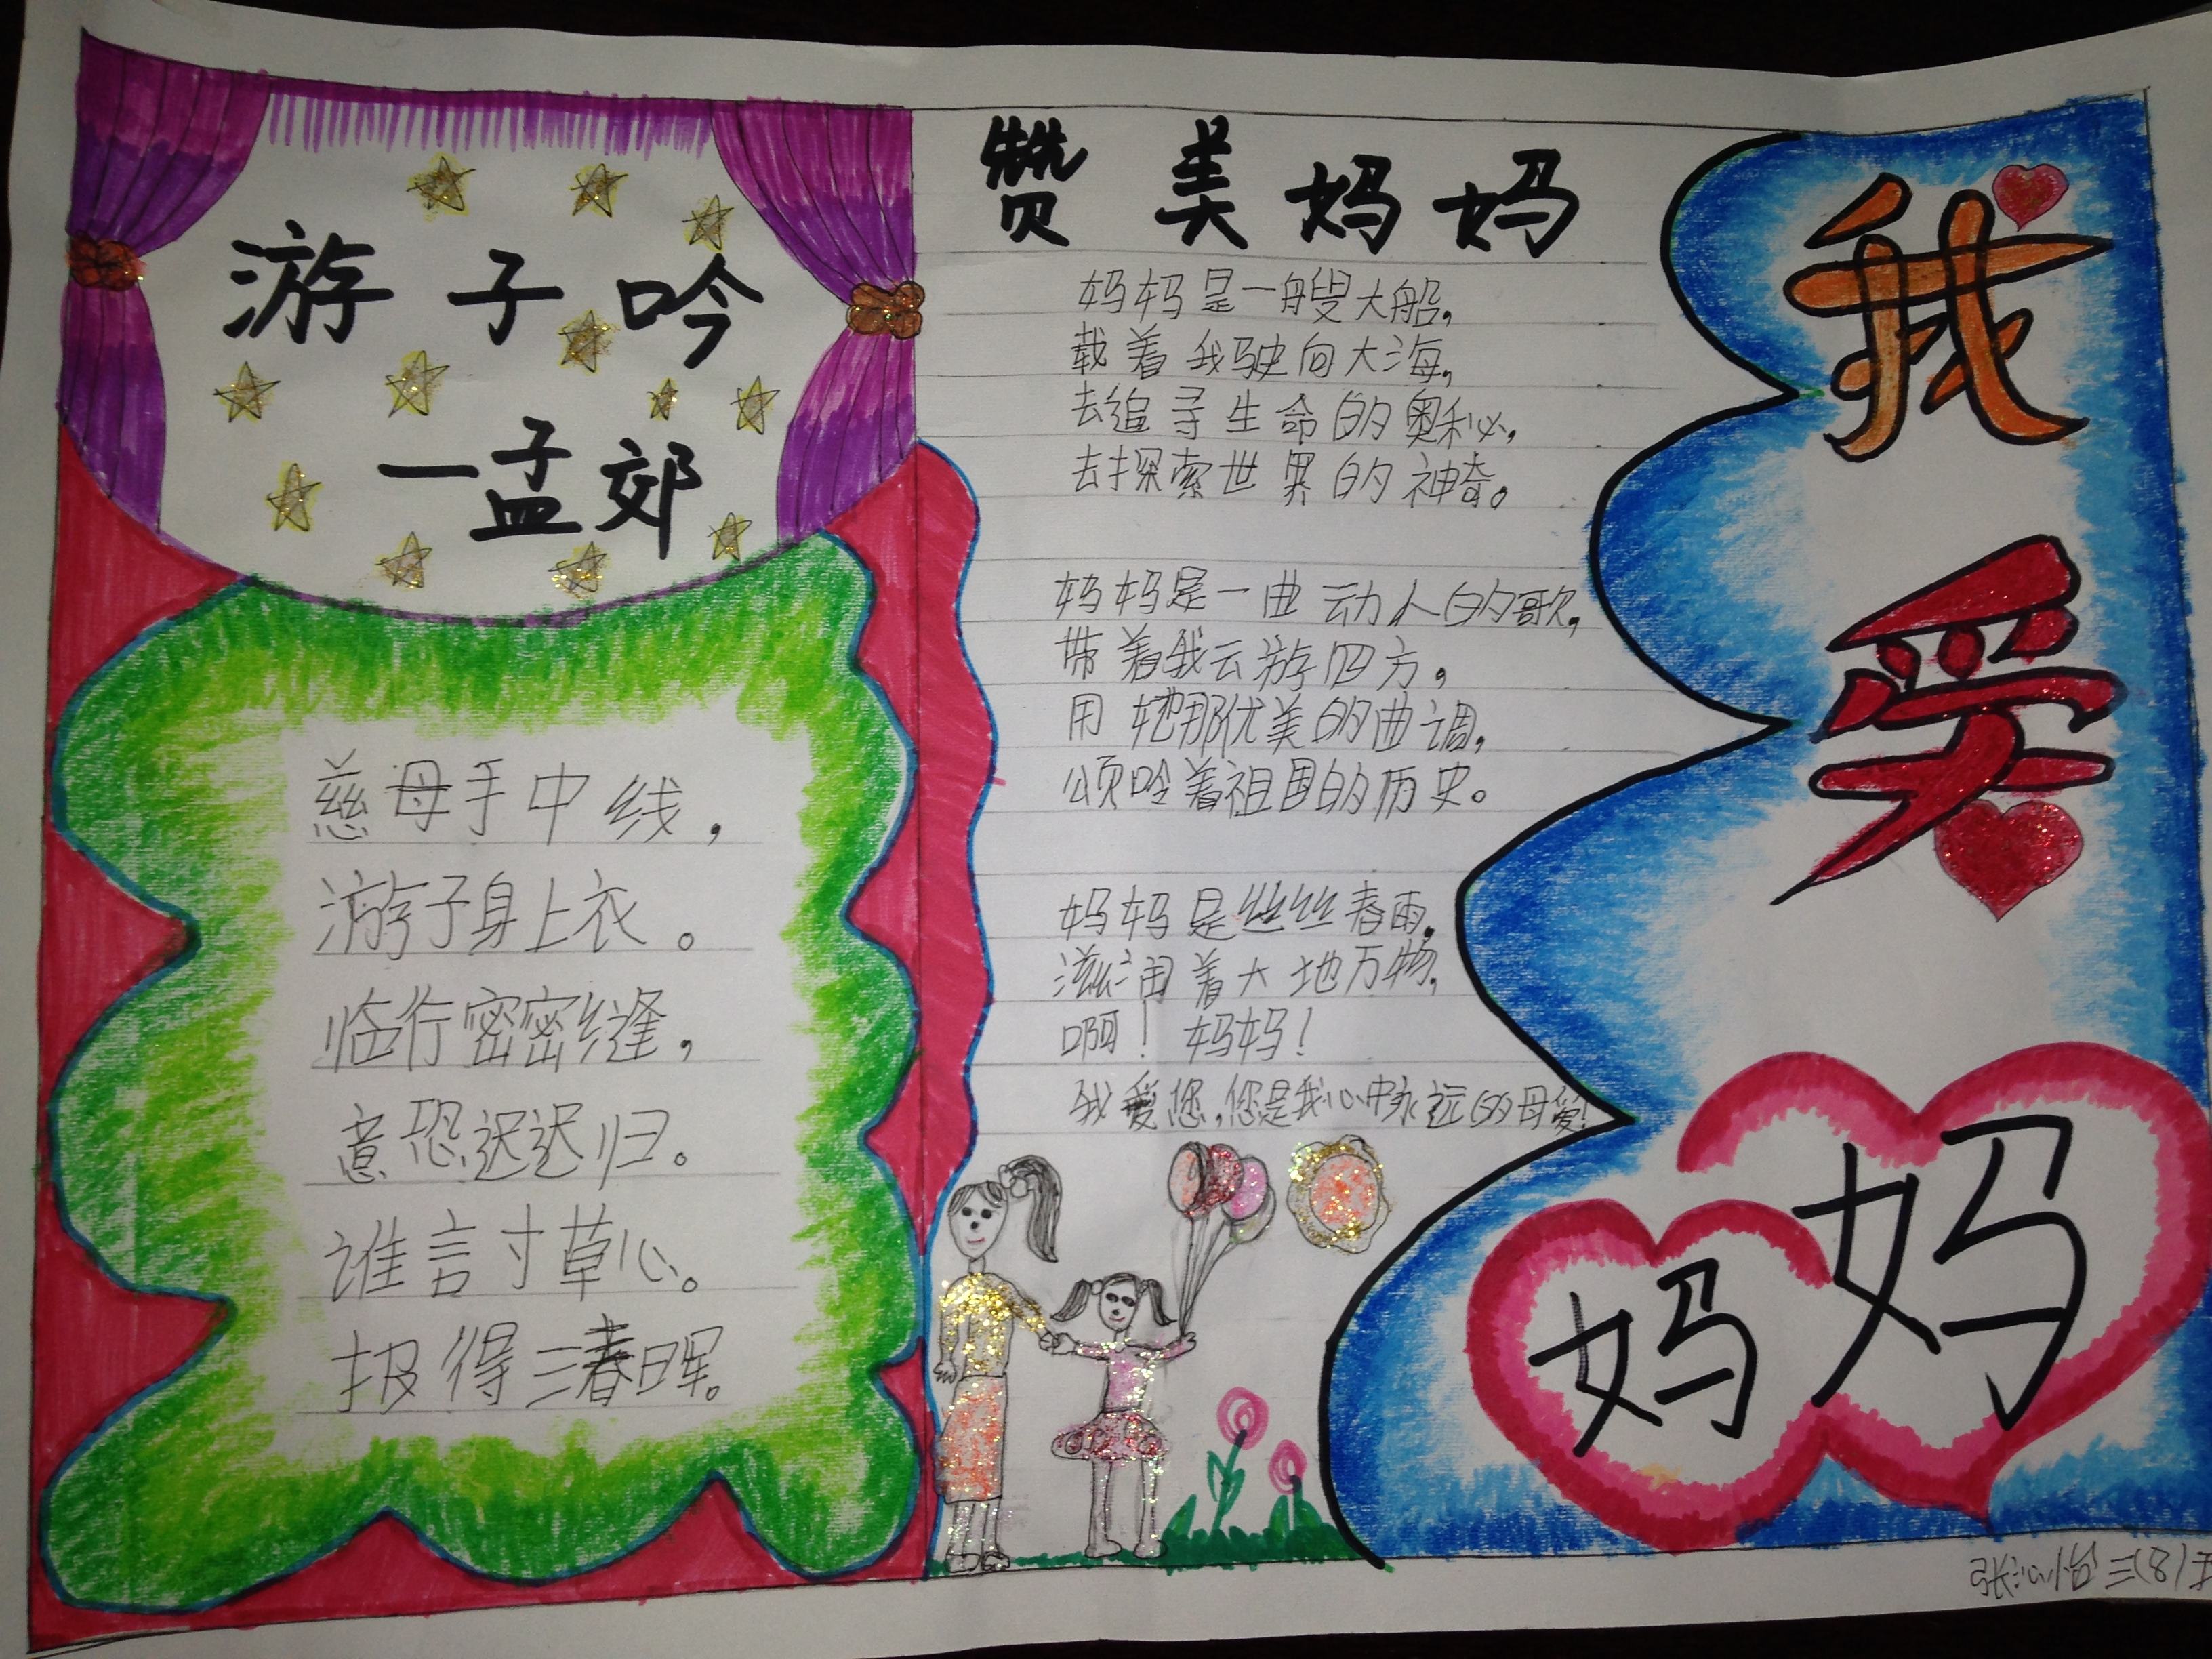 游子吟
—孟郊
慈母手中线，
游子身上衣。
临行密密缝，
意恐迟迟归。
谁言寸草心。
报得三春晖。
赞美妈妈
妈妈是一艘大船，
载着我驶向大海，
去追寻生命的奥秘，
去探索世界的神奇。
妈妈是一曲动人的歌，
带着我云游四方，
用她那优美的曲调，
颂吟着祖国的历史。
妈妈是丝丝春雨，
滋润着大地万物，
啊！妈妈！
我爱您，您是我心中永远的母爱！
我
爱
妈妈
张沁怡三(8)